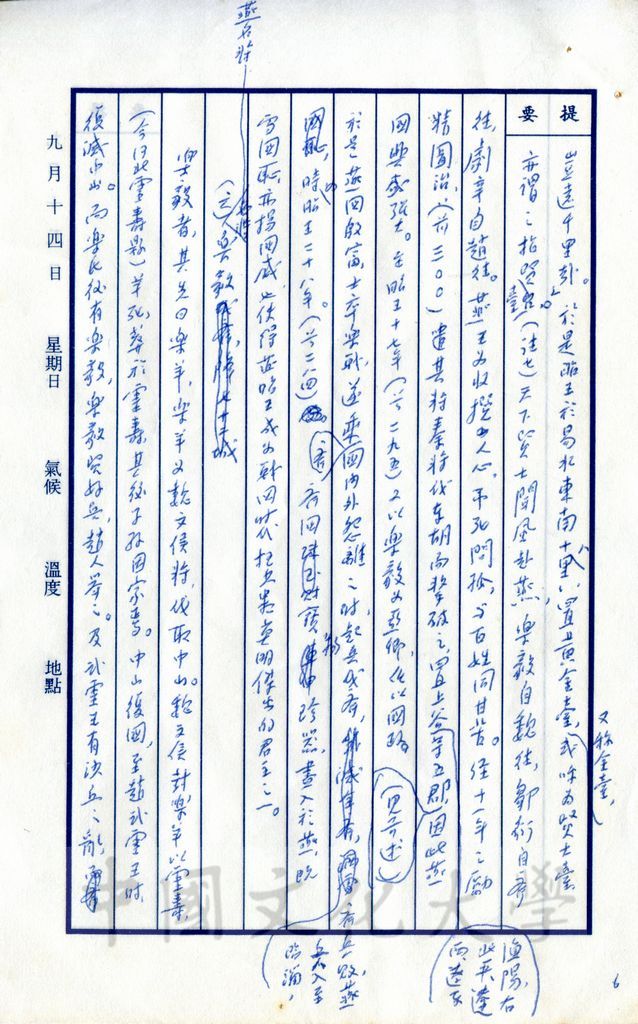 燕名將
提要
豈遠千里哉。於是昭王於易水東南十八里，置黃金臺，或呼為賢士臺
又称金臺，
亦謂之招賢臺。(註七)天下賢士聞風赴燕，樂毅自魏往，鄒衍自齊
往，劇辛自趙往。燕王為收撰人心，弔死問孤，与百姓同甘苦。經十一年之勵
精圖治，(前三〇〇)遣其將秦將伐東胡而擊破之，置上谷等五郡，因此燕
漁陽，右北平，遼西，遼東
國典盛強大。至昭王十七年(前二九五)又以樂毅為亞卿，任以國政
(見前述)
於是燕國殷富，士卒樂戰，遂乘國內外怨離之時，起兵伐齊，齊兵敗，燕
兵入至臨淄，
時昭王二十八年。(前二八四)齊國珠玉財寶珍器，盡入於燕，既
雪國恥，亦揚國威，也使得燕昭王成為戰國時代招賢明傑出的君主之一。
(三)名將樂毅
樂毅者，其先曰樂羊，樂羊為魏文侯將，伐取中山。魏文侯封樂羊以靈壽
(今河北靈壽縣)羊死，葬於靈壽，其後子孫因家焉。中山復國，至趙武靈王時
復滅中山。而樂氏後有樂毅，樂毅賢好兵，趙人舉之。及武靈王有沙丘之亂，
九月十四日 星期日 氣候 溫度 地點
6
中國文化大學